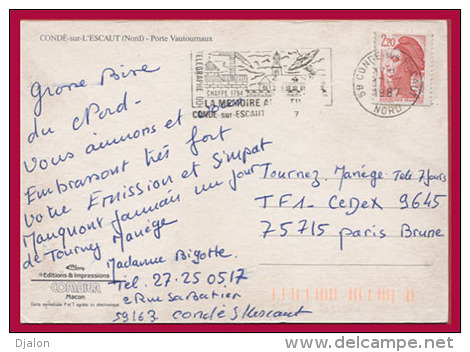 CONDÉ-sur-L'ESCAUT (Nord) - Porte Vautournaux
TELEGRAPHE
CHAPPE 1794
LA MEMOIRE
CONDE-sur-ESCAUT
59 CONDE
1987
NORD
2,20
Grosse Bise
du Nord-
Vous aimons et
Embrassont très fort
Votre Emission et Simpat
Manquont Jamais un Jour
de Tourney Manège
Madame Bigotte
Tel. 27.25 05.17
2 Rue Sabatier
59163 condé S/Lescaut
Tournez. Manège Tele 7 Jours
TF1- CeDex 9645
75715 paris Brune
Editions & Impressions
COMBIER
Macon